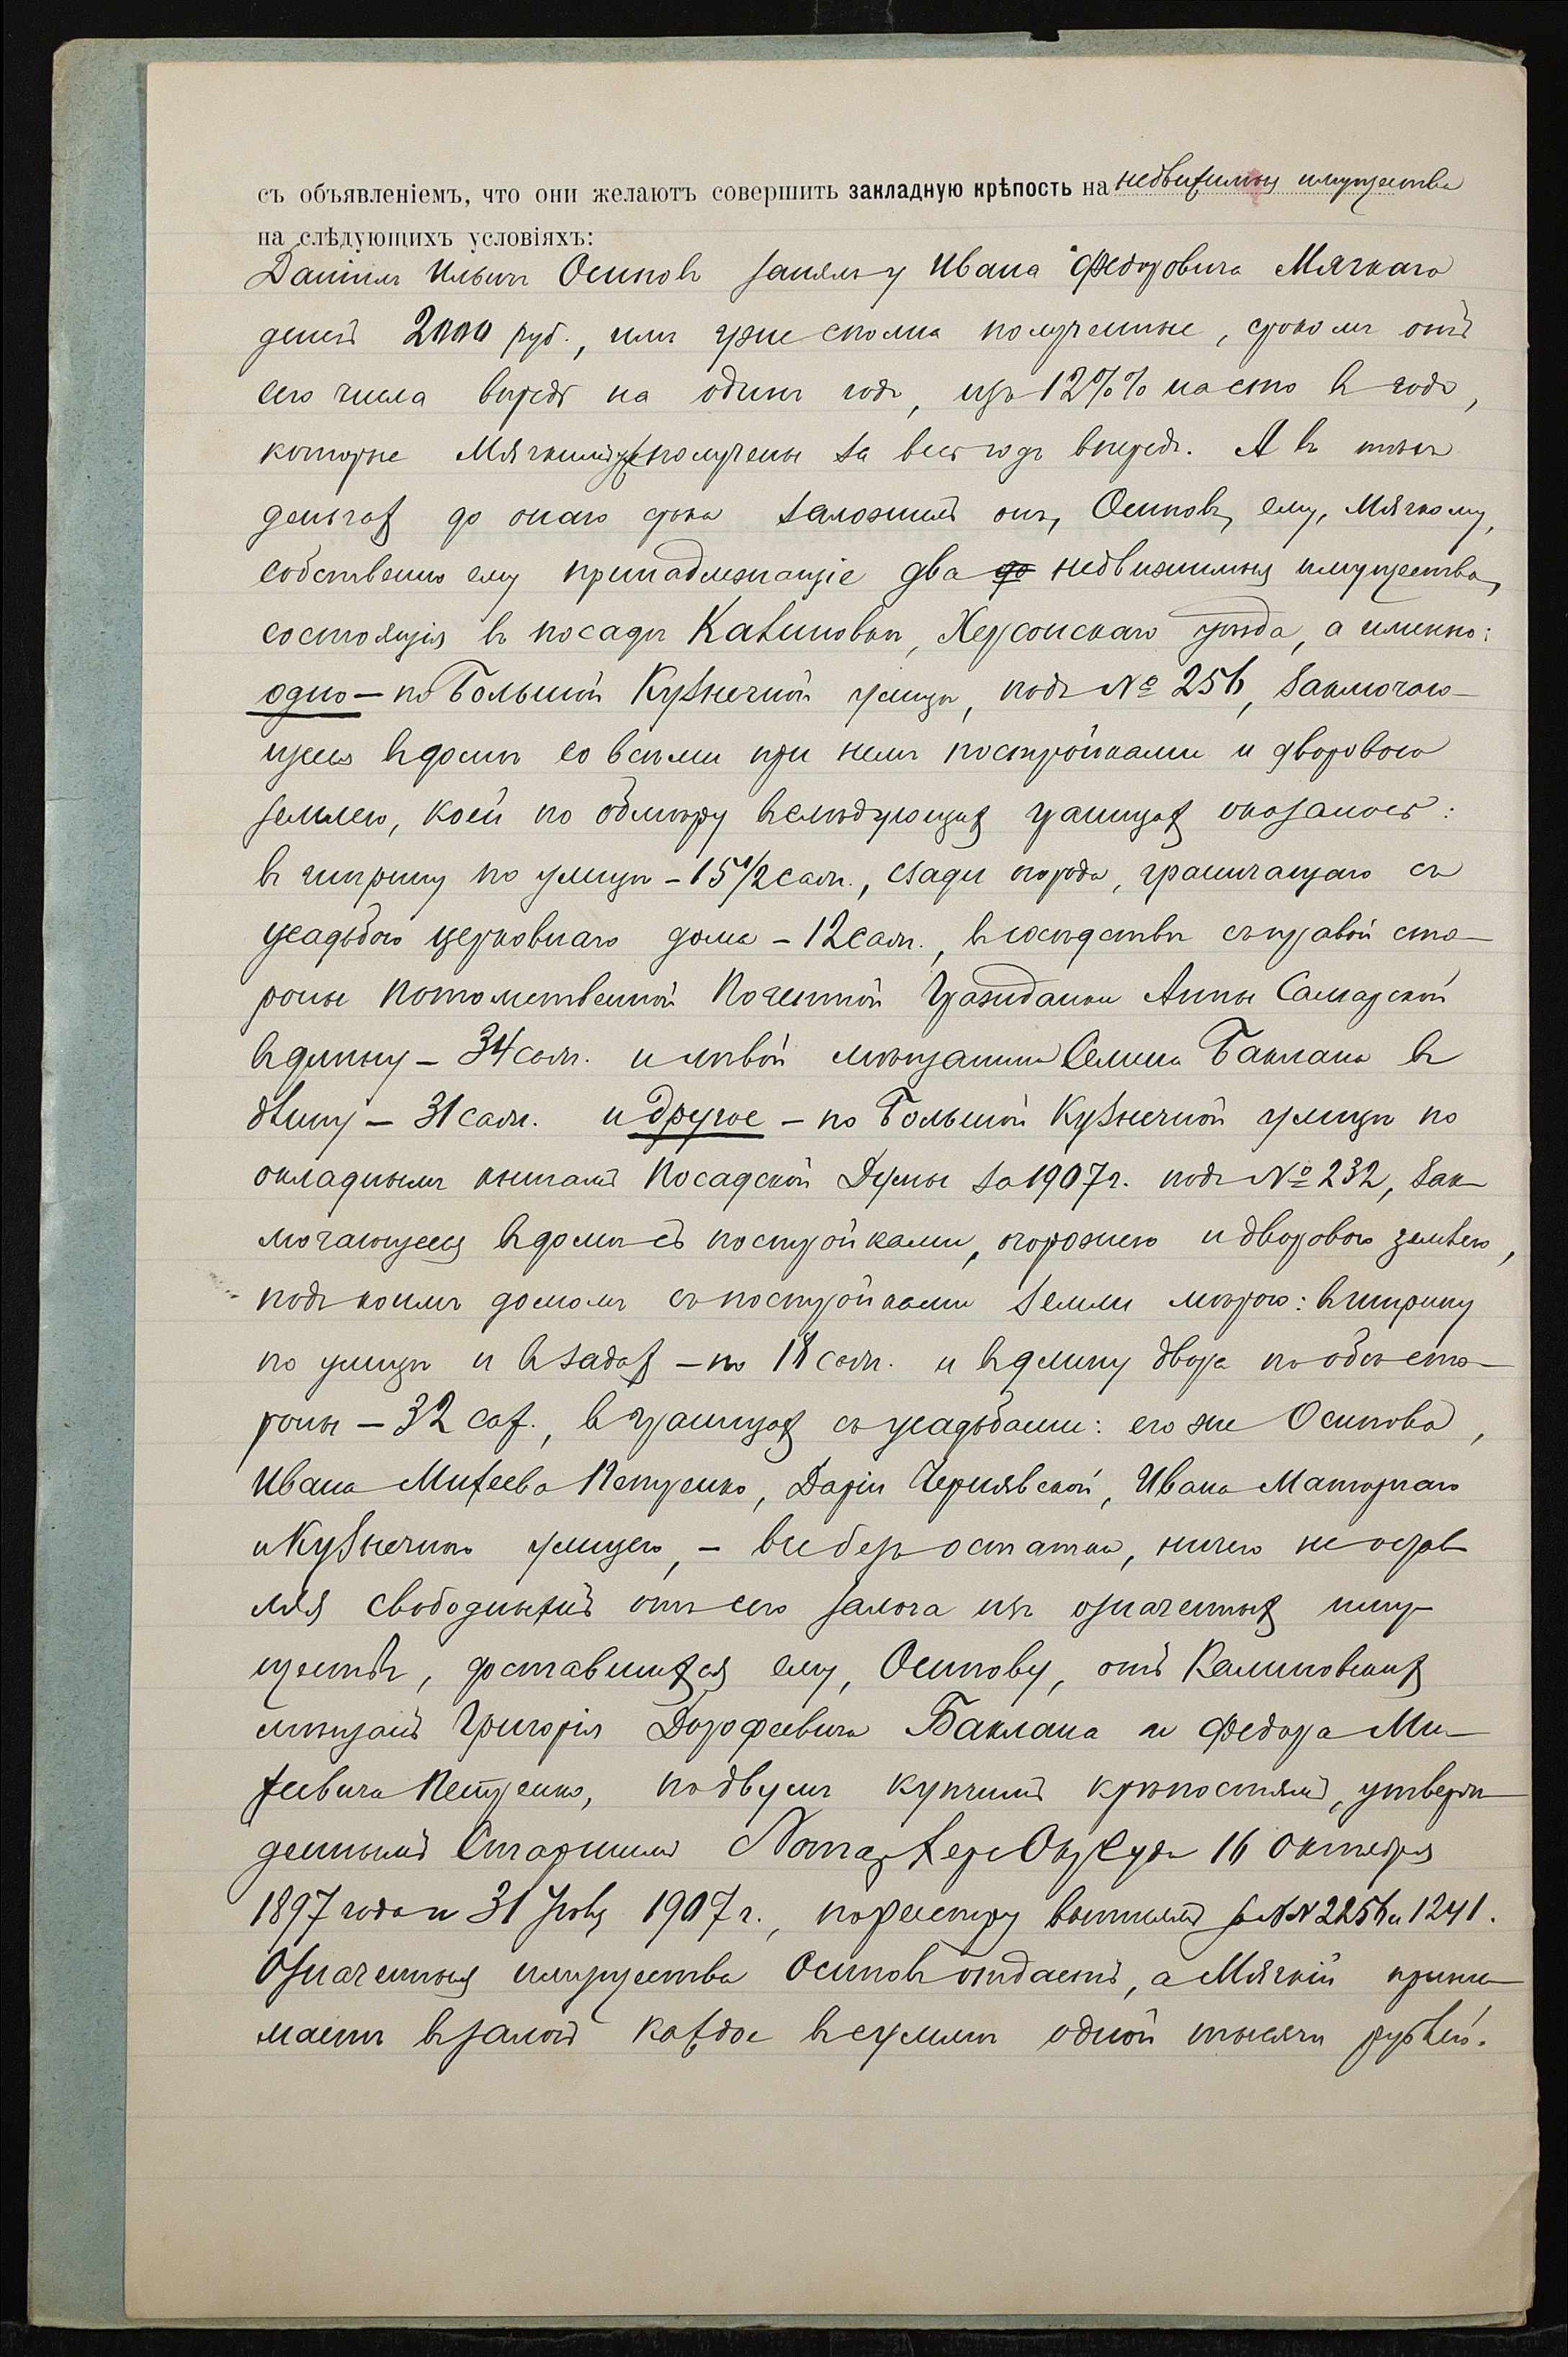 съ объявленіемъ, что они желаютъ совершить закладную крѣпость на недвижимыя имущества
на слѣдующихъ условіяхъ:
Даніилъ Ильичъ Осиповъ занялъ у Ивана Федоровича Мягкаго
денегъ 2000 руб., имъ уже сполна полученные, срокомъ отъ
сего числа впредь на одинъ годъ, изъ 12%% на сто въ годъ,
которые Мягкимъ уже получены за весь годъ впередъ. А въ тѣхъ
деньгахъ до онаго срока заложилъ онъ, Осиповъ, ему, Мягкому,
собственно ему принадлежащіе два недвижимыя имущества,
состоящія въ посадѣ Калиновкѣ, Херсонскаго уѣзда, а именно:
одно – по Большой Кузнечной улицѣ, подъ № 256, заключаю-
щееся въ домѣ со всѣми при немъ постройками и дворовою
землею, коей по обмѣру въ слѣдующихъ границахъ оказалось:
въ ширину по улицѣ – 15 1/2 саж., сзади огорода, граничащаго съ
усадьбою церковнаго дома – 12 саж., въ сосѣдствѣ съ правой сто-
роны Потомственной Почетной Гражданки Анны Самарской
въ длину – 34 саж. и лѣвой мѣщанина Семена Баклана въ
длину – 31 саж. и другое – по Большой Кузнечной улицѣ по
окладнымъ книгамъ Посадской Думы за 1907 г. подъ № 232, зак-
лючающееся въ домѣ съ постройками, огорожею и дворовою землею,
подъ коимъ домомъ съ постройками земли мѣрою: въ ширину
по улицѣ и въ задахъ – по 18 саж. и въ длину двора по обѣ сто-
роны – 32 саж., въ границахъ съ усадьбами: его же Осипова,
Ивана Михеева Петренко, Даріи Чернявской, Ивана Маторнаго
и Кузнечною улицею, – все безъ остатка, ничего не остав-
ляя свободнымъ отъ сего залога изъ означенныхъ иму-
ществъ, доставшихся ему, Осипову, отъ Калиновскихъ
мѣщанъ Григорія Дорофеевича Баклана и Федора Ми-
хеевича Петренко, по двумъ купчимъ крѣпостямъ, утверж-
деннымъ Старшимъ Нотар. Хер. Окр. Суда 16 Октября
1897 года и 31 1907 г., по реестру выписямъ за №№ 2256 и 1241.
Означенныя имущества Осиповъ отдаетъ, а Мягкій прини-
маетъ въ залогъ каждое въ суммѣ одной тысячи рублей.